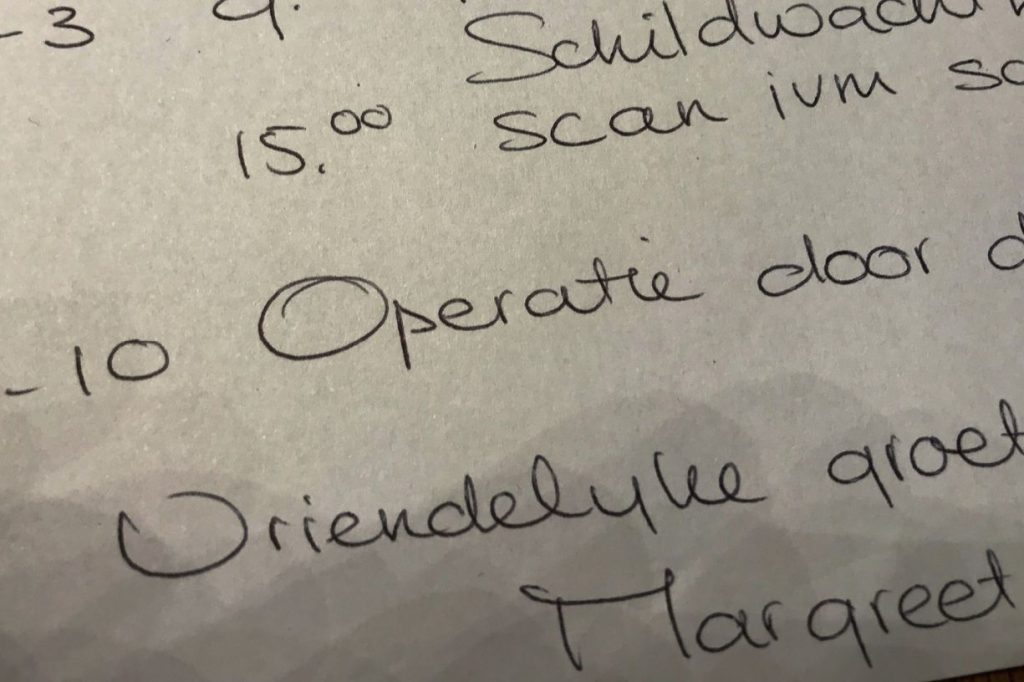 -3
Schildwach
15.00 scan ivm
-10 Operatie door
Vriendelyke groet
Margreet